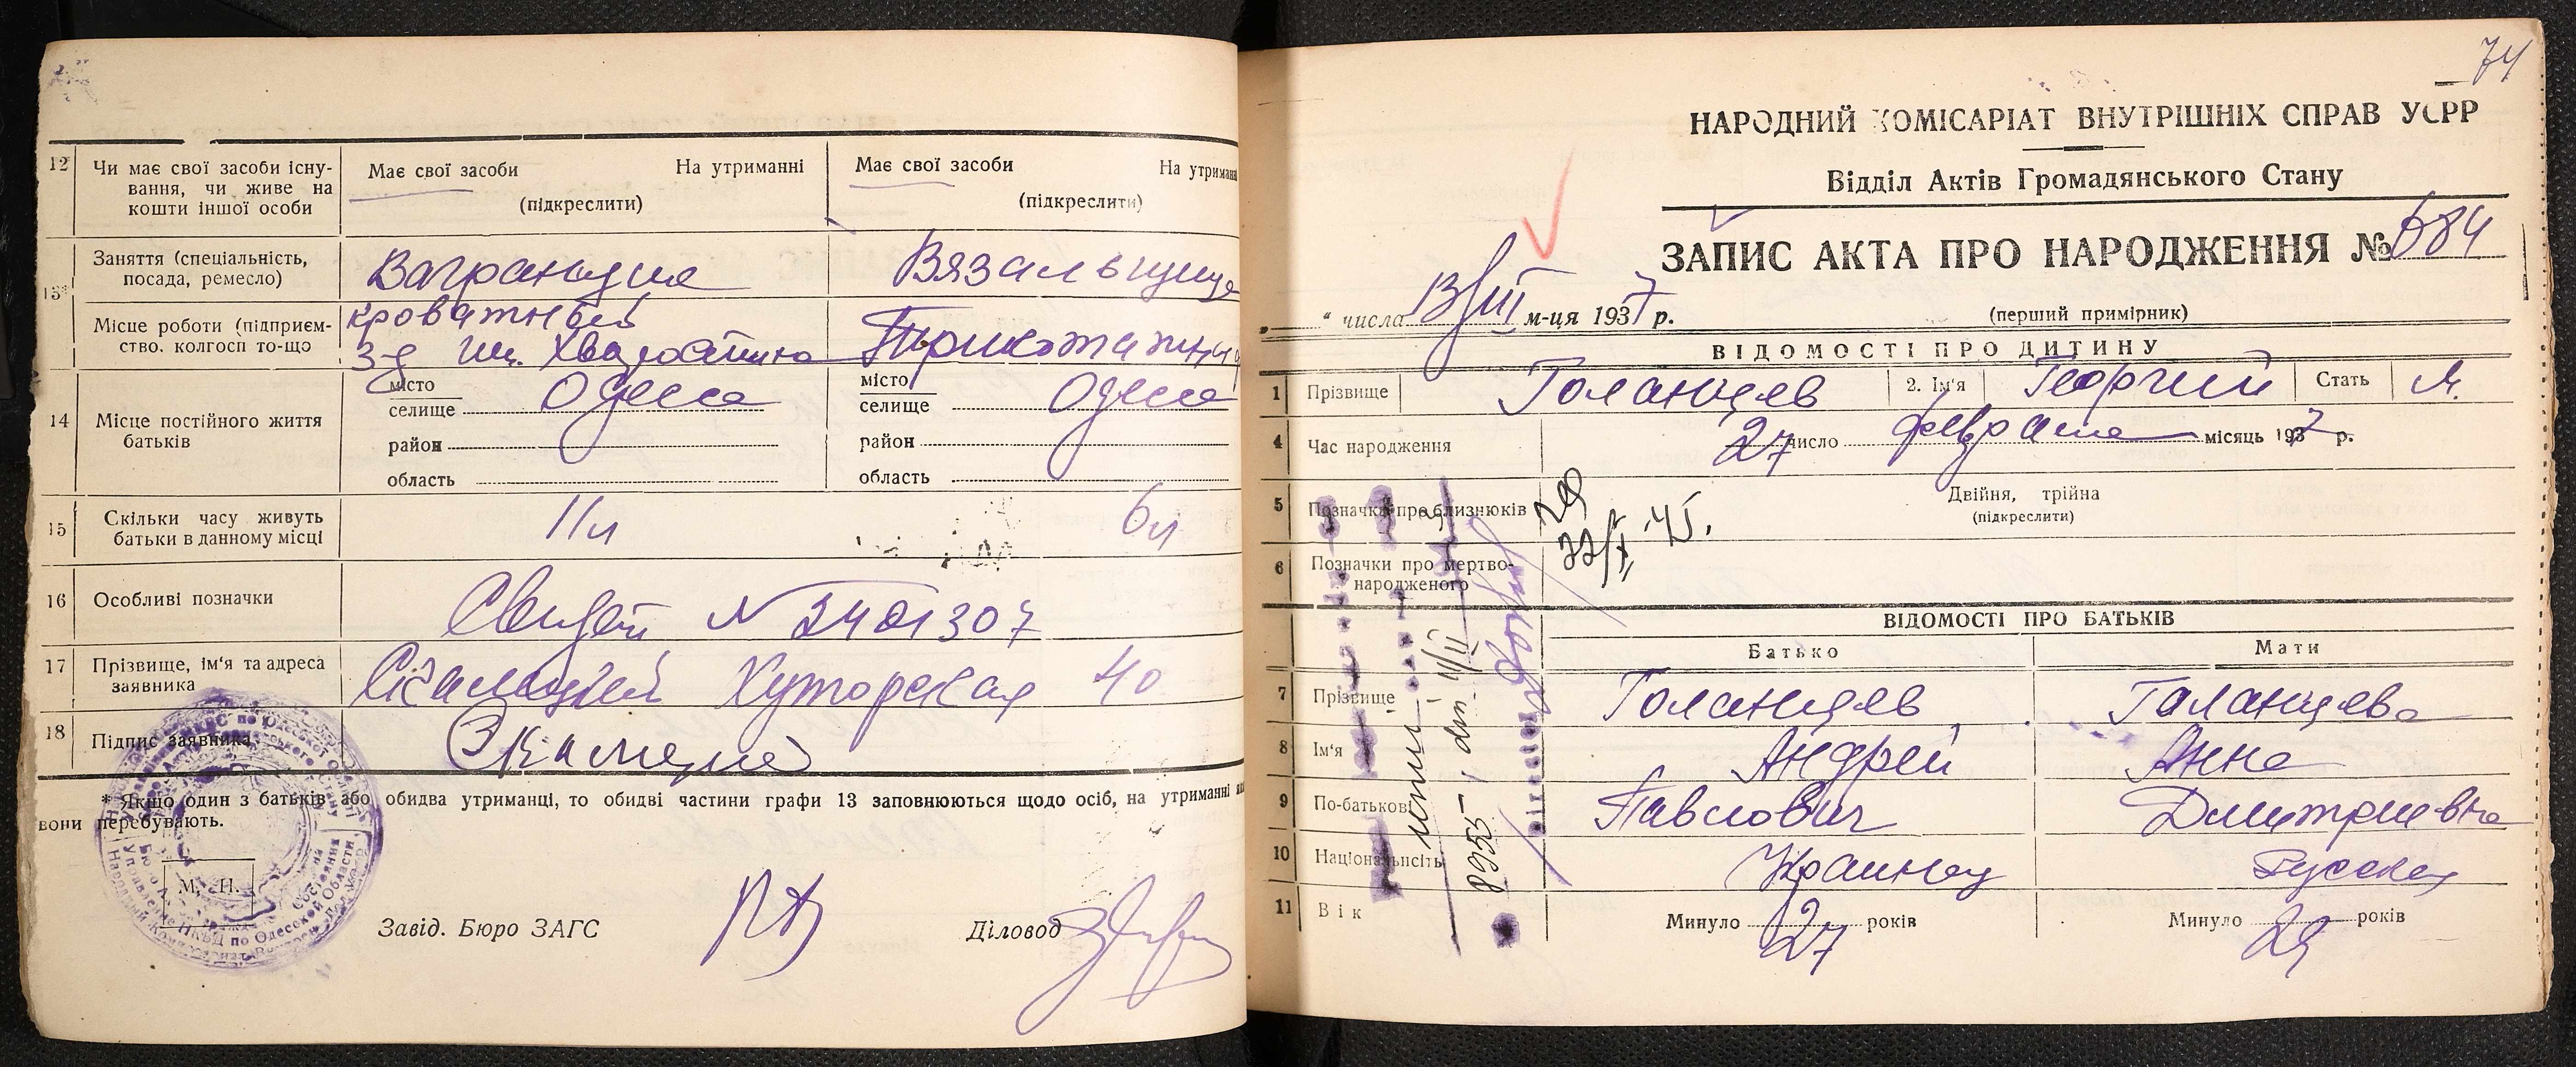 12 Чи має свої засоби існу-
вання, чи живе на
кошти іншої особи
Має свої засоби На утриманні
(підкреслити)
Має свої засоби На утриманн
(підкреслити)
13*
Заняття (спеціальність,
посада, ремесло)
Вагранщик
Вязальщица
Місце роботи (підприєм-
ство, колгосп то-що
кроватный
з-д
Трикотажная
14 Місце постійного життя
батьків
місто
селище Одесса
район
область
місто
селище Одесса
район
область
15 Скільки часу живуть
батьки в данному місці
11 л
6 л
16 Особливі позначки
Свидет N 2401307
17 Прізвище, ім'я та адреса
заявника
Скалецкий Хуторская 40
18 Підпис заявника
* Якщо один з батьків або обидва утриманці, то обидві частини графи 13 заповнюються щодо осіб, на утриманні
вони перебувають.
М. П.
Завід. Бюро ЗАГС
Діловод
74
НАРОДНИЙ КОМІСАРІАТ ВНУТРІШНІХ СПРАВ УСРР
Відділ Актів Громадянського Стану
ЗАПИС АКТА ПРО НАРОДЖЕННЯ № 684
„ “ числа 13/III м-ця 1937 р.
(перший примірник)
ВІДОМОСТІ ПРО ДИТИНУ
1 Прізвище Голанцев 2. Ім'я Георгий Стать М.
4 Час народження 27 число февраля місяць 1937 р.
5 Позначки про близнюків
Двійня, трійна
(підкреслити)
6 Позначки про мертво-
народженого
ВІДОМОСТІ ПРО БАТЬКІВ
Батько Мати
7 Прізвище Голанцев Галанцева
8 Ім'я Андрей Анна
9 По-батькові Павлович Дмитриевна
10 Національність Украинец Русская
11 Вік Минуло 27 років Минуло 29 років